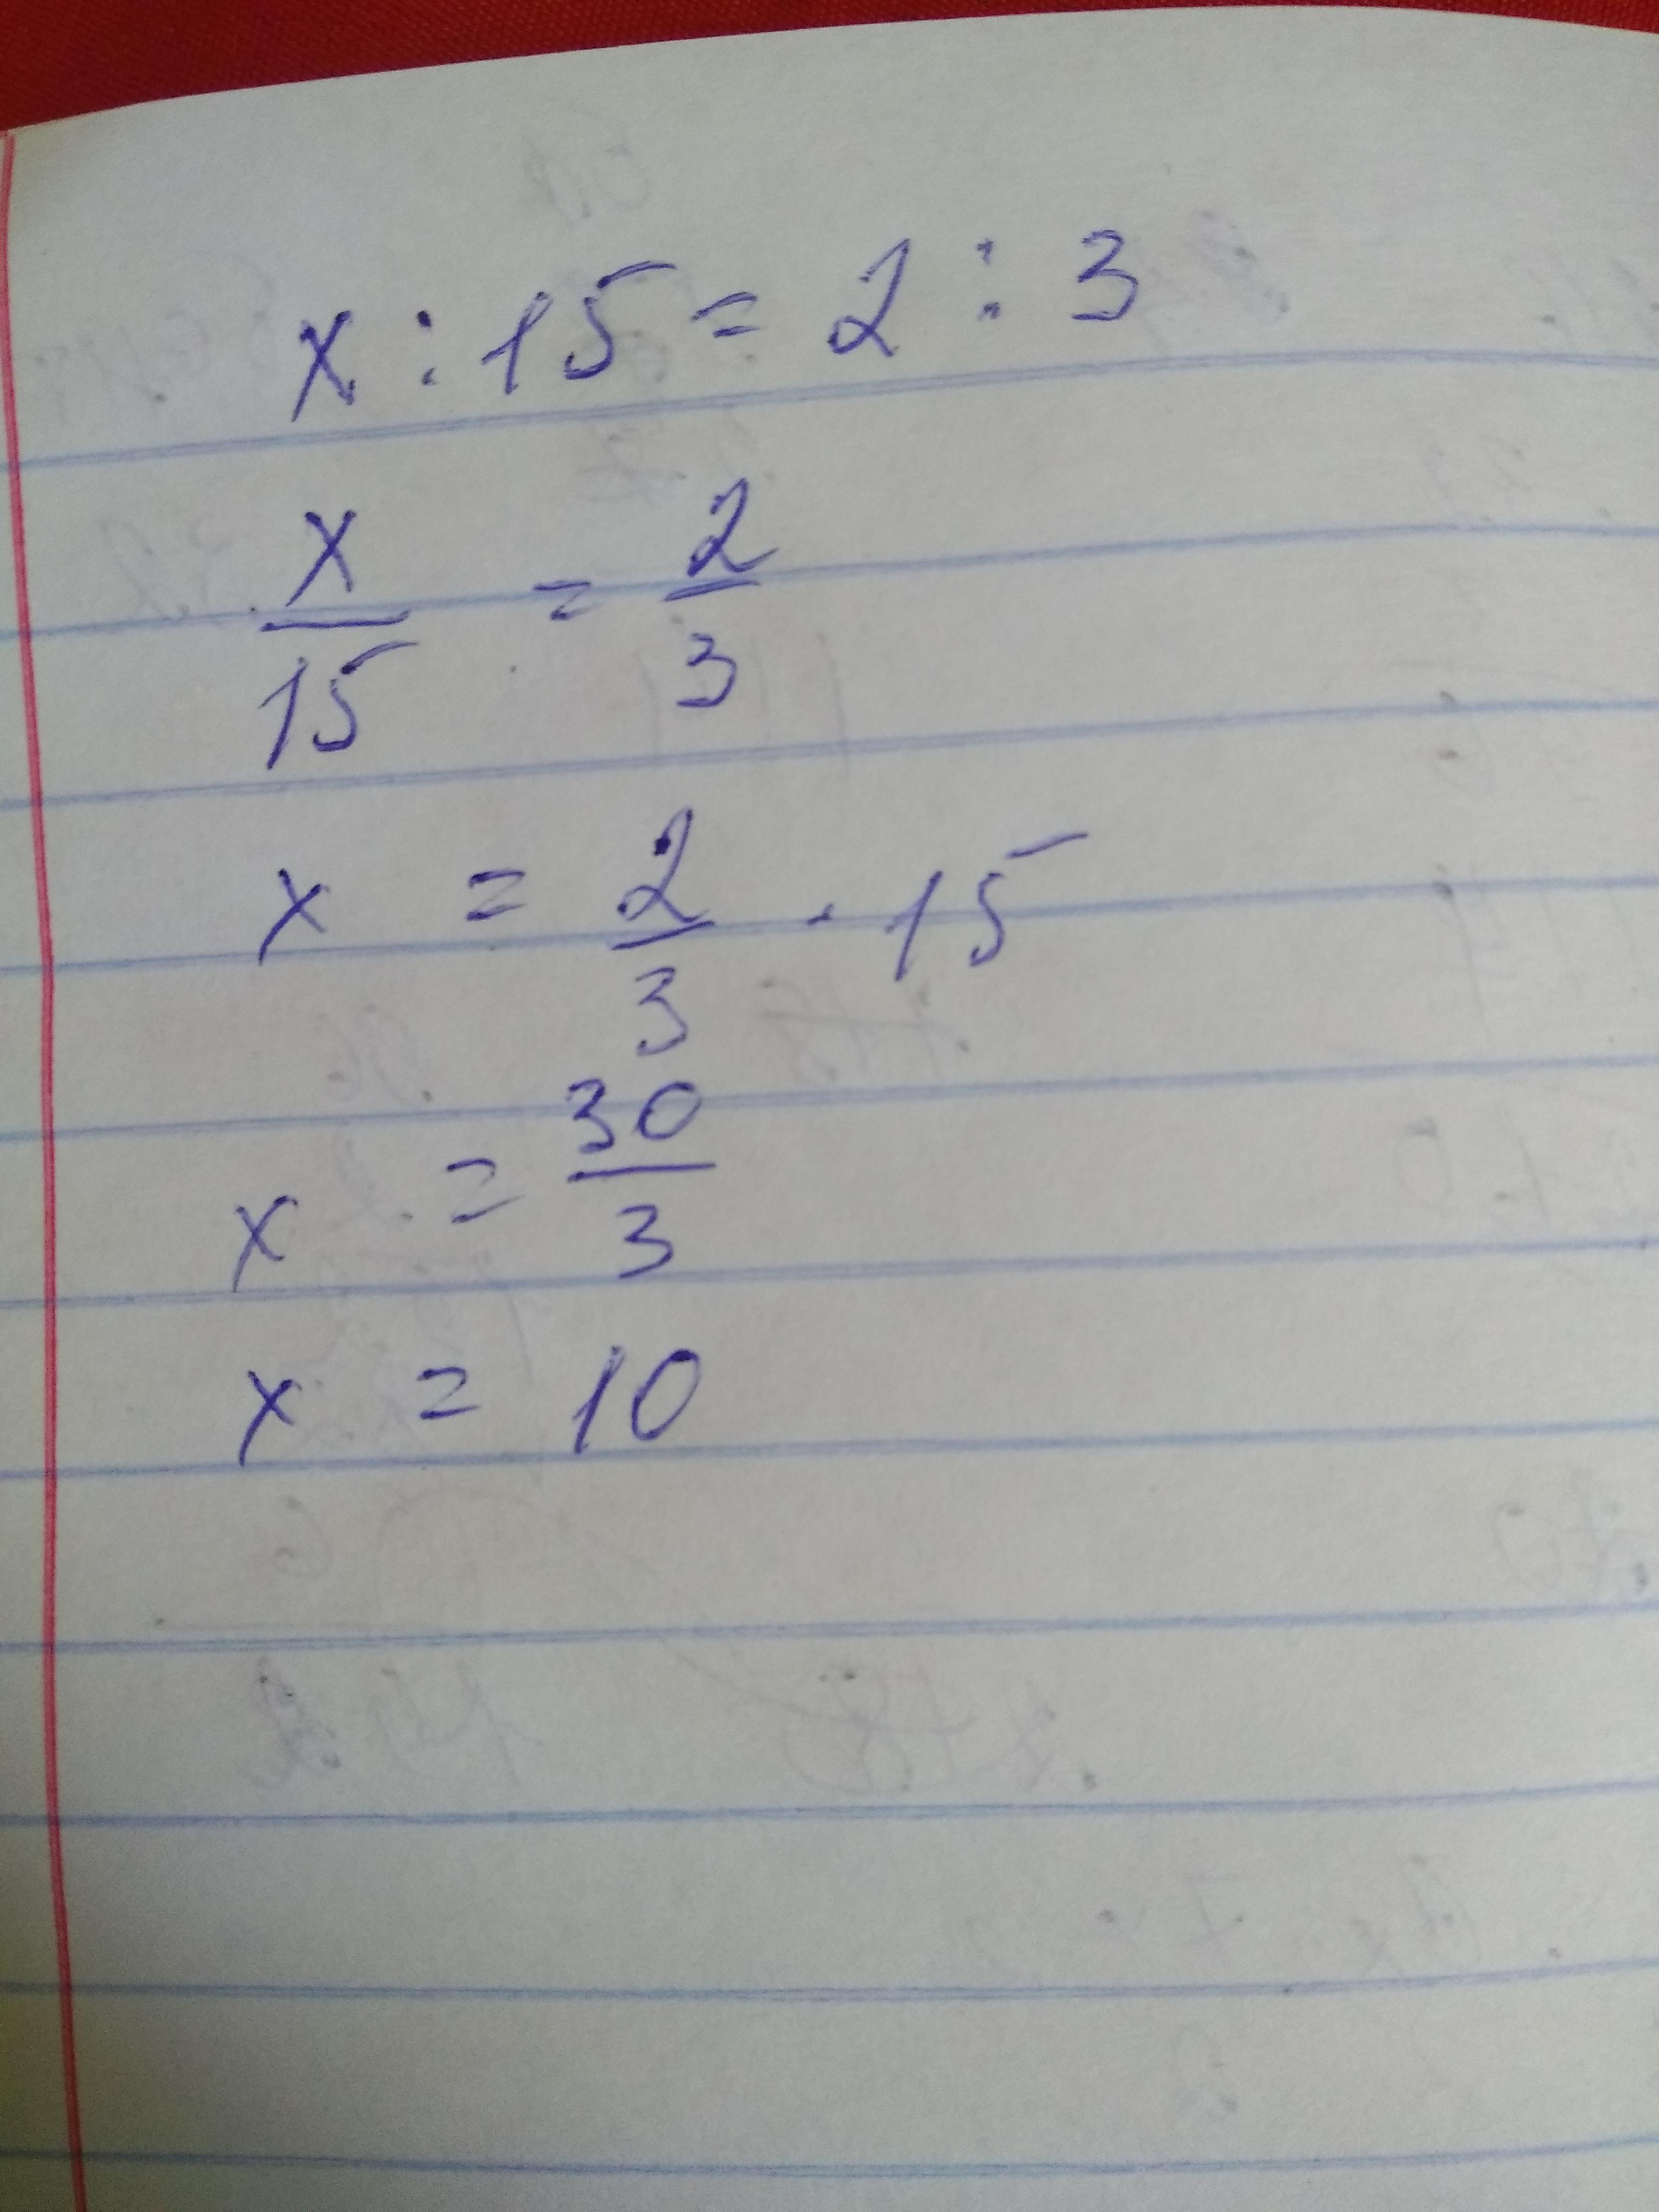 x : 15 = 2 : 3
x/15 = 2/3
x = 2/3 · 15
x = 30/3
x = 10